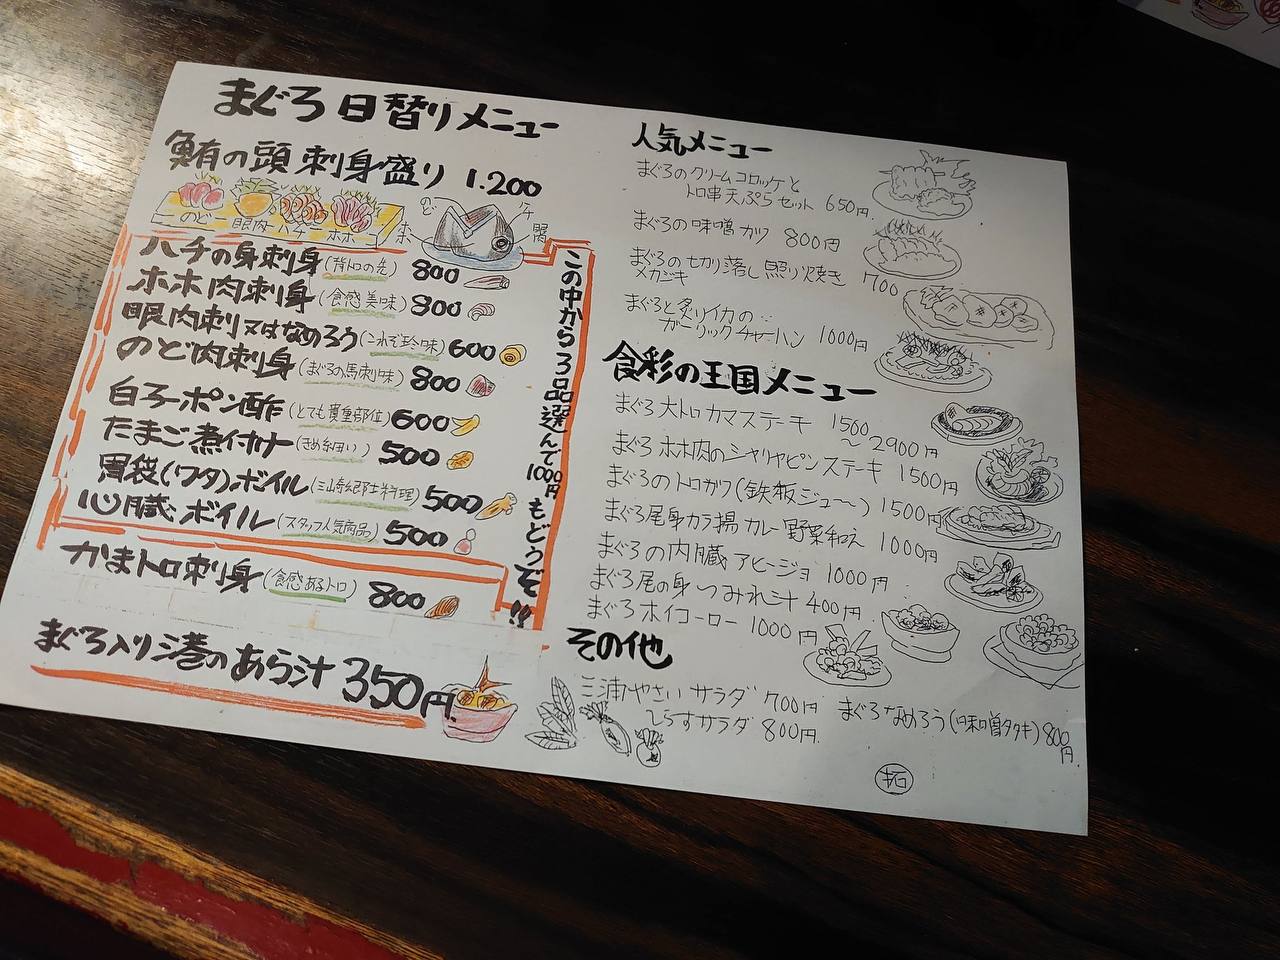 まぐろ日替りメニュー
鮪の頭 刺身盛り 1.200
のど 眼肉 ハチ ホホ
のど
ハチ
ホホ
眼
ハチの身刺身(背トロの先) 800
ホホ肉刺身(食感美味) 800
眼肉刺又はなめろう(これぞ珍味) 600
のど肉刺身(まぐろの馬刺味) 800
白子ーポン酢(とても貴重部位) 600
たまご煮付け(きめ細い) 500
胃袋(ワタ)ボイル 500
心臓ボイル(スタッフ人気商品) 500
この中から3品選んで1000円もどうぞ!!
かまトロ刺身(食感あるトロ) 800
まぐろ入り港のあら汁 350円
人気メニュー
まぐろのクリームコロッケと
トロ串天ぷらセット 650円
まぐろの味噌カツ 800円
まぐろの切り落し照り焼き 700
メカジキ
まぐろと炙りイカの
ガーリックチャーハン 1000円
食彩の王国メニュー
まぐろ大トロカマステーキ 1500
〜2900円
まぐろホホ肉のシャリャピンステーキ 1500円
まぐろのトロカツ(鉄板ジュ〜) 1500円
まぐろ尾身カラ揚カレー野菜和え 1000円
まぐろの内臓アヒージョ 1000円
まぐろ尾の身つみれ汁 400円
まぐろホイコーロー 1000円
その他
三浦やさいサラダ 700円
しらすサラダ 800円
まぐろなめろう(味噌タタキ) 800円
拓